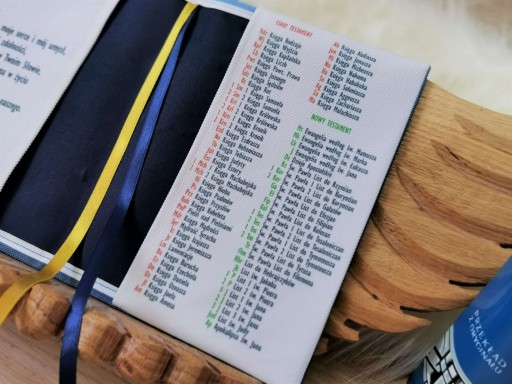 moje serce i mój umysł,
zdolności,
w Twoim Słowie,
w życiu
STARY TESTAMENT
Księga Rodzaju
Księga Wyjścia
Księga Kapłańska
Księga Liczb
Księga Powt. Prawa
Księga Jozuego
Księga Sędziów
Księga Rut
Księga Samuela
Księga Samuela
Księga Królewska
Księga Królewska
Księga Kronik
Księga Kronik
Księga Ezdrasza
Księga Nehemiasza
Księga Tobiasza
Księga Judyty
Księga Estery
Księga Machabejska
Księga Machabejska
Księga Hioba
Księga Psalmów
Księga Przysłów
Księga Koheleta
Pieśń nad Pieśniami
Księga Mądrości
Mądrość Syracha
Księga Izajasza
Księga Jeremiasza
Lamentacje
Księga Barucha
Księga Ezechiela
Księga Daniela
Księga Ozeasza
Księga Joela
Księga Amosa
Księga Abdiasza
Księga Jonasza
Księga Micheasza
Księga Nahuma
Księga Habakuka
Księga Sofoniasza
Księga Aggeusza
Księga Zachariasza
Księga Malachiasza
NOWY TESTAMENT
Ewangelia według św. Mateusza
Ewangelia według św. Marka
Ewangelia według św. Łukasza
Ewangelia według św. Jana
Dzieje Apostolskie
św. Pawła List do Rzymian
św. Pawła 1 List do Koryntian
św. Pawła 2 List do Koryntian
św. Pawła List do Galatów
św. Pawła List do Efezjan
św. Pawła List do Filipian
św. Pawła List do Kolosan
św. Pawła 1 List do Tesaloniczan
św. Pawła 2 List do Tesaloniczan
św. Pawła 1 List do Tymoteusza
św. Pawła 2 List do Tymoteusza
św. Pawła List do Tytusa
św. Pawła List do Filemona
List do Hebrajczyków
List św. Jakuba
1 List św. Piotra
2 List św. Piotra
1 List św. Jana
2 List św. Jana
3 List św. Jana
List św. Judy
Apokalipsa św. Jana
PRZEKŁAD
Z ORYGINAŁU